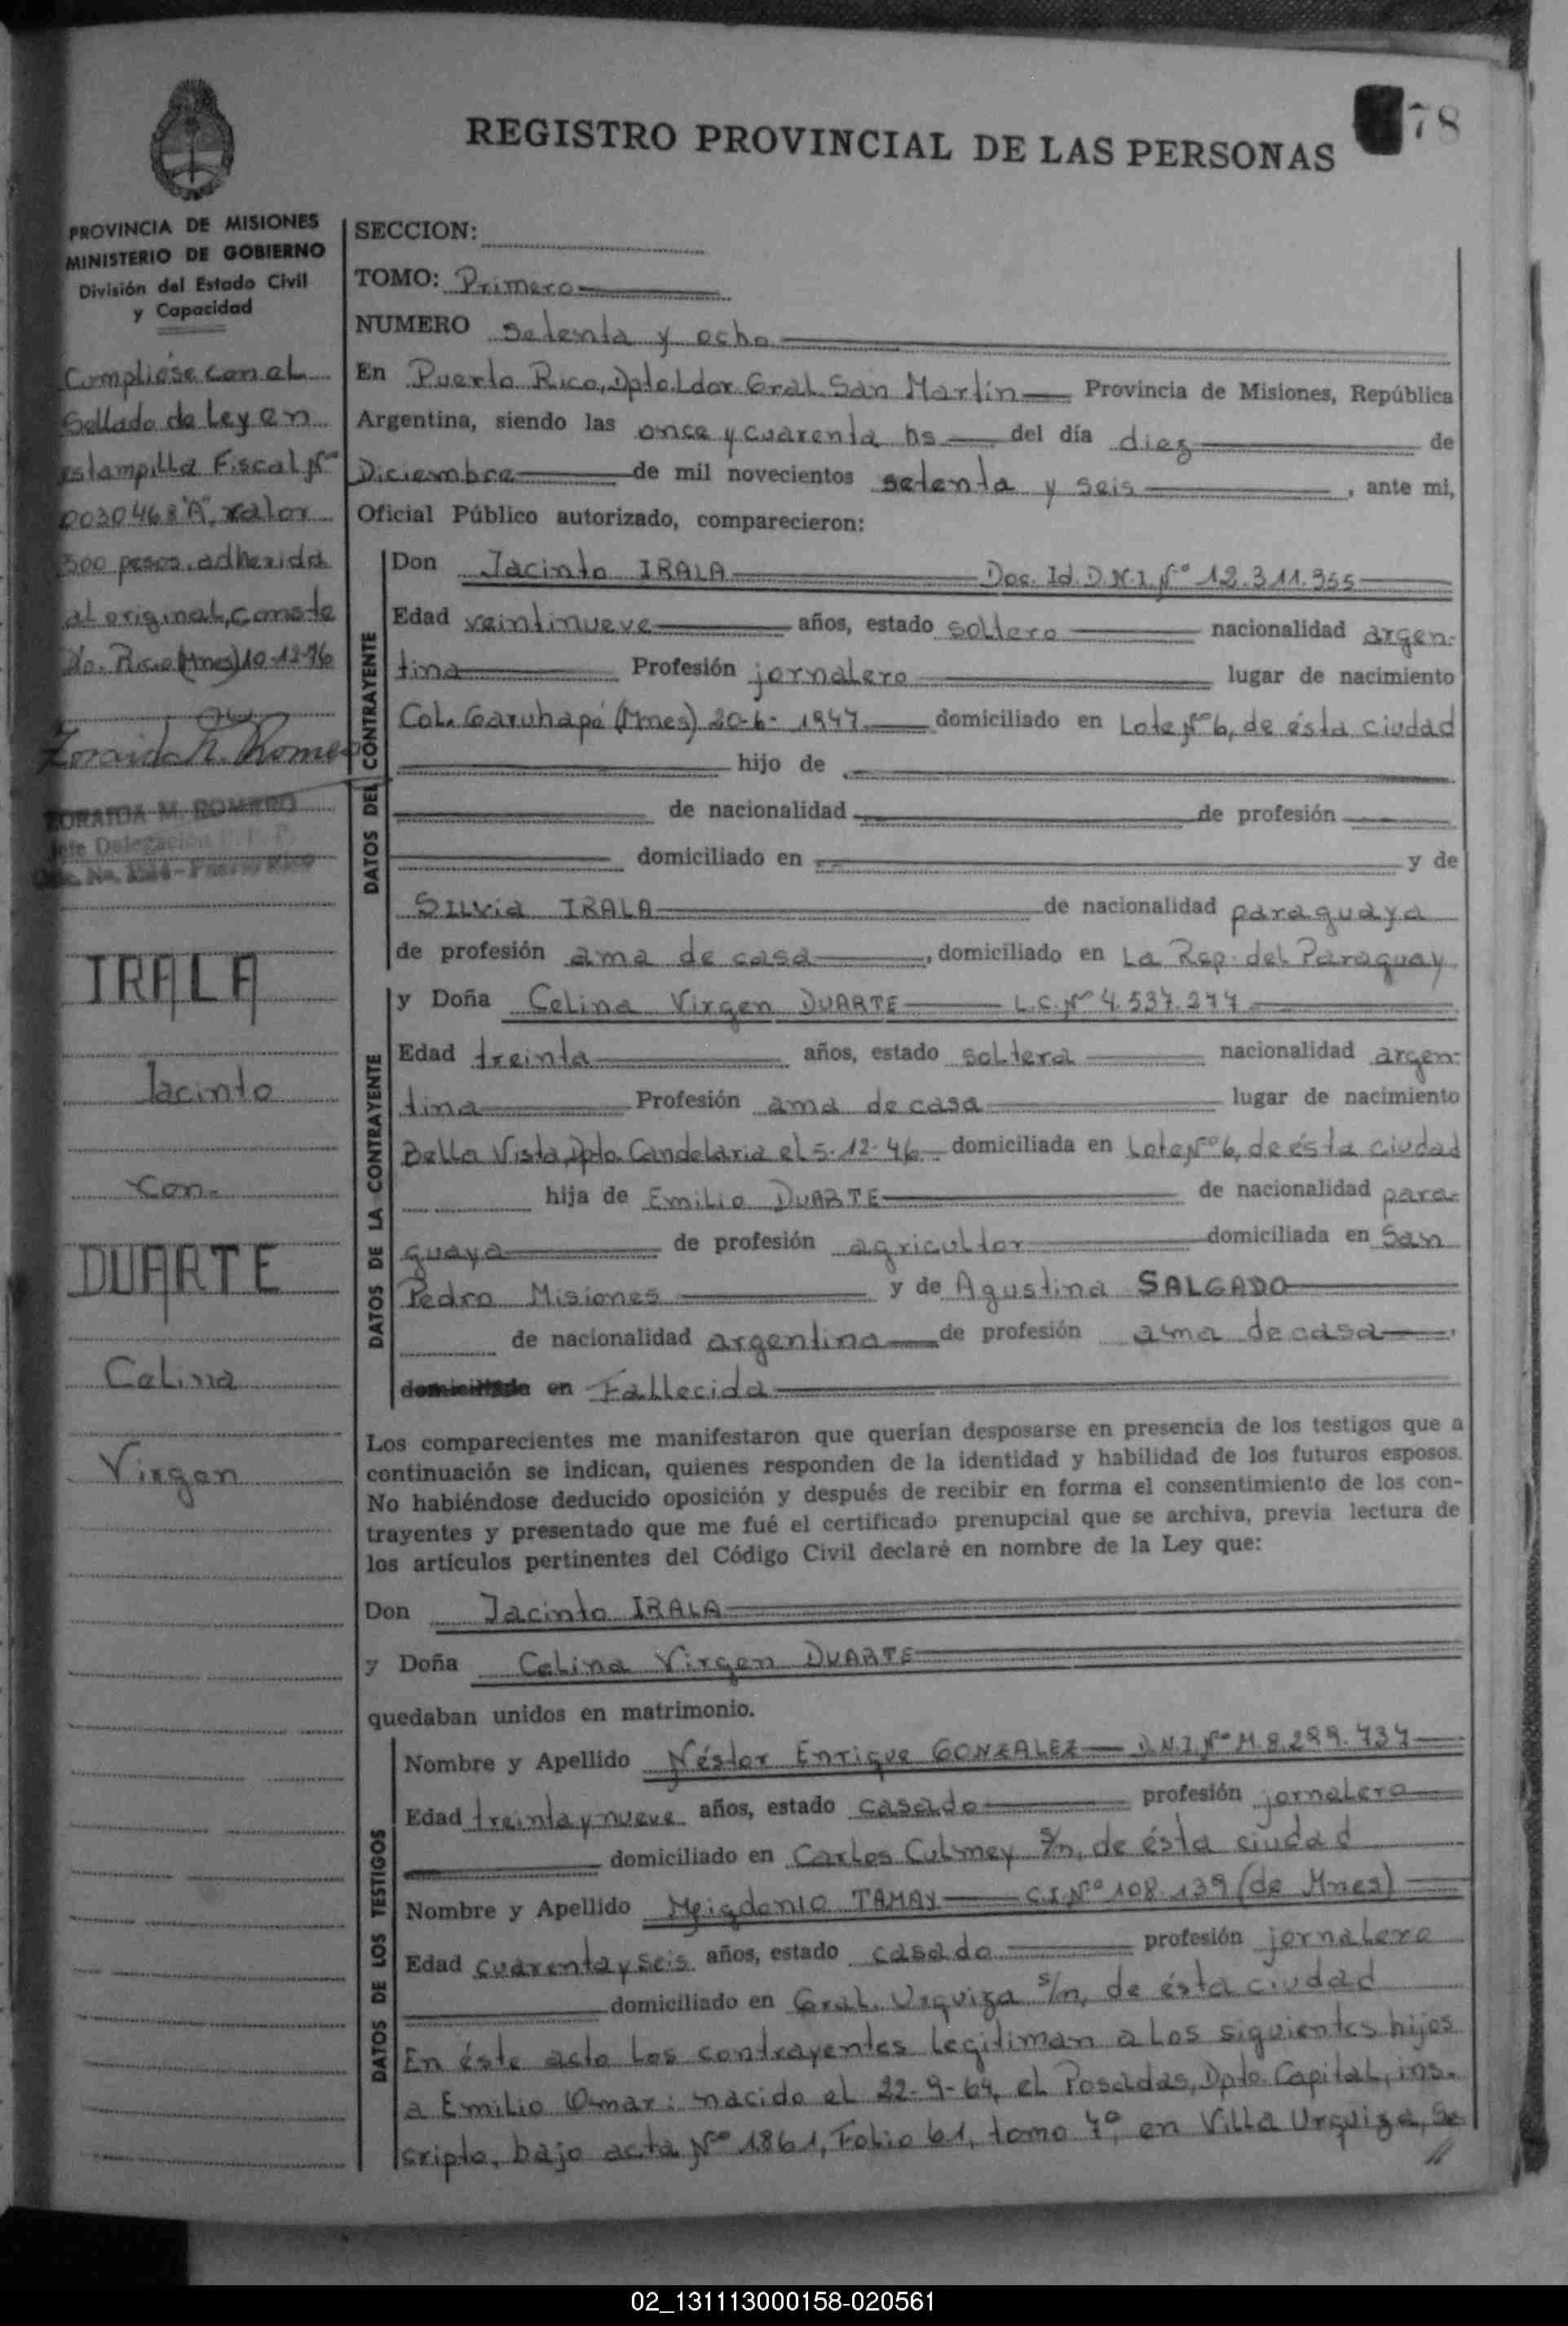 78
REGISTRO PROVINCIAL DE LAS PERSONAS
PROVINCIA DE MISIONES
MINISTERIO DE GOBIERNO
División del Estado Civil
y Capacidad
Cumplióse con el
Sellado de Ley en
estampilla Fiscal Nº
0030468 "A", valor
300 pesos, adherida
al original, conste
Pto. Rico (Mnes) 10-12-76
Zoraida M. Romero
ZORAIDA M. ROMERO
Jefe Delegación
Puerto Rico
IRALA
Jacinto
con
DUARTE
Celina
Virgen
SECCION:
TOMO: Primero
NUMERO setenta y ocho
En Puerto Rico, Dpto. Ldor. Gral. San Martín Provincia de Misiones, República
Argentina, siendo las once y cuarenta hs del día diez de
Diciembre de mil novecientos setenta y seis , ante mi,
Oficial Público autorizado, comparecieron:
DATOS DEL CONTRAYENTE
Don Jacinto IRALA Doc. Id. D.N.I. Nº 12.311.955
Edad veintinueve años, estado soltero nacionalidad argen-
tina Profesión jornalero lugar de nacimiento
Col. Garuhapé (Mnes) 20-6-1947 domiciliado en Lote Nº 6, de ésta ciudad
hijo de
de nacionalidad de profesión
domiciliado en y de
Silvia IRALA de nacionalidad paraguaya
de profesión ama de casa , domiciliado en La Rep. del Paraguay
DATOS DE LA CONTRAYENTE
y Doña Celina Virgen DUARTE L.C. Nº 4.537.277
Edad treinta años, estado soltera nacionalidad argen-
tina Profesión ama de casa lugar de nacimiento
Bella Vista, Dpto. Candelaria el 5-12-46 domiciliada en Lote Nº 6, de ésta ciudad
hija de Emilio DUARTE de nacionalidad para-
guaya de profesión agricultor domiciliada en San
Pedro Misiones y de Agustina SALGADO
de nacionalidad argentina de profesión ama de casa ,
domiciliada en Fallecida
Los comparecientes me manifestaron que querían desposarse en presencia de los testigos que a
continuación se indican, quienes responden de la identidad y habilidad de los futuros esposos.
No habiéndose deducido oposición y después de recibir en forma el consentimiento de los con-
trayentes y presentado que me fué el certificado prenupcial que se archiva, previa lectura de
los artículos pertinentes del Código Civil declaré en nombre de la Ley que:
Don Jacinto IRALA
y Doña Celina Virgen DUARTE
quedaban unidos en matrimonio.
DATOS DE LOS TESTIGOS
Nombre y Apellido Néstor Enrique GONZALEZ D.N.I. Nº M.8.299.737
Edad treinta y nueve años, estado casado profesión jornalero
domiciliado en Carlos Culmey s/n, de ésta ciudad
Nombre y Apellido TAMAY C.I. Nº 108.139 (de Mnes)
Edad cuarenta y seis años, estado casado profesión jornalero
domiciliado en Gral. Urquiza s/n, de ésta ciudad
En éste acto los contrayentes legitiman a los siguientes hijos
a Emilio Omar: nacido el 22-9-64, el Posadas, Dpto. Capital, ins-
cripto, bajo acta Nº 1861, Folio 61, tomo 7º, en Villa Urquiza, Se
//
02_131113000158-020561